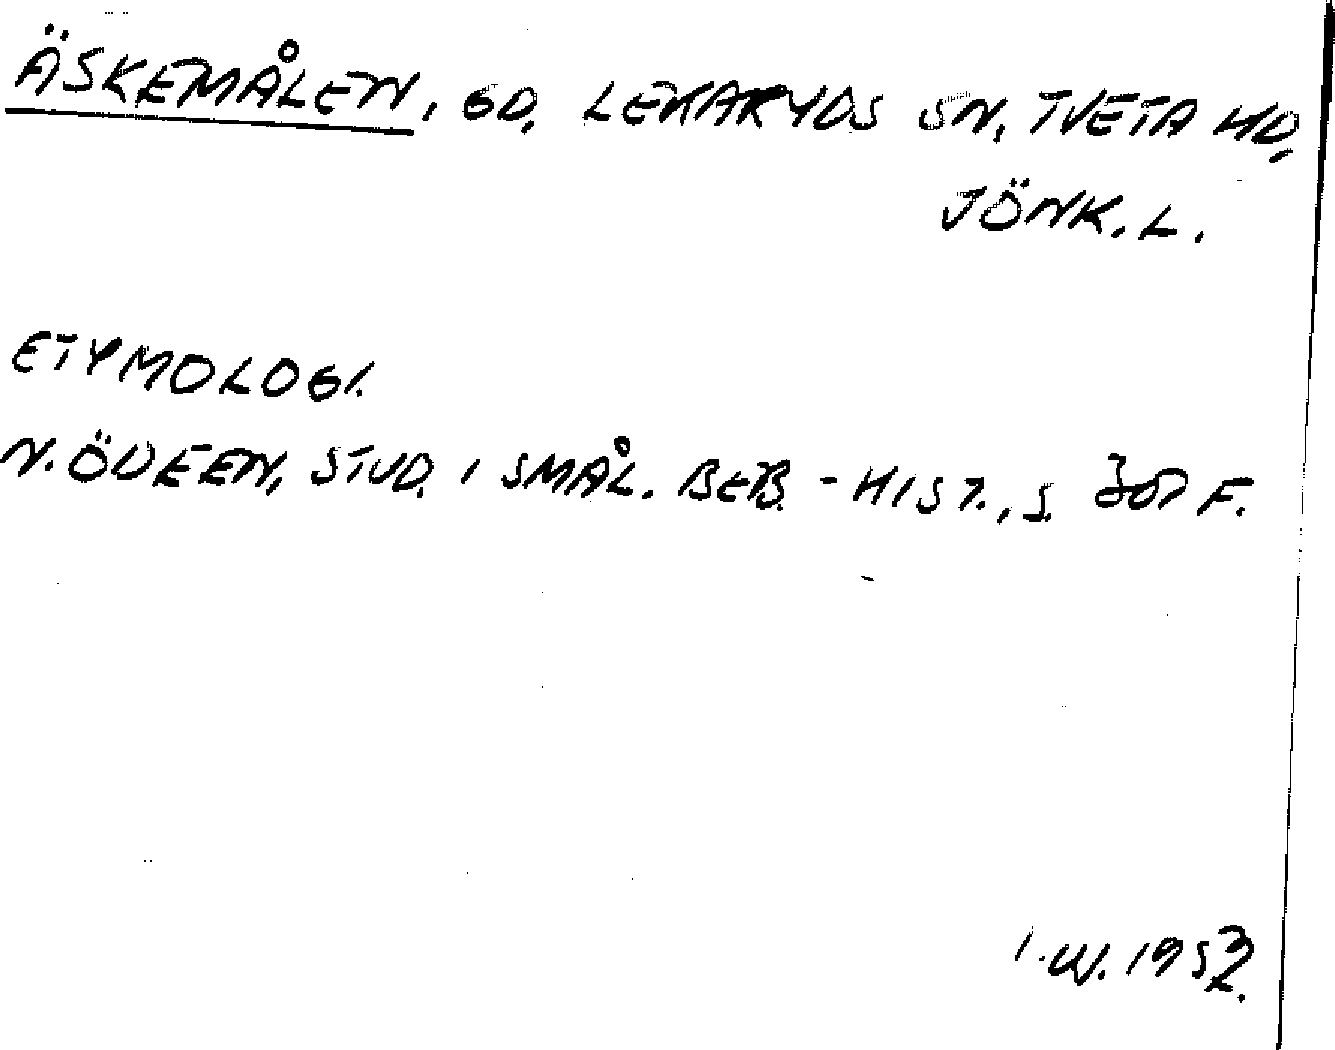 ÄSKEMÅLEN, GD, LEKARYDS SN, TVETA HD,
JÖNK. L.
ETYMOLOGI.
N. ÖDEEN, STUD. I SMÅL. BEB. - HIST., S. F.
I.W. 195